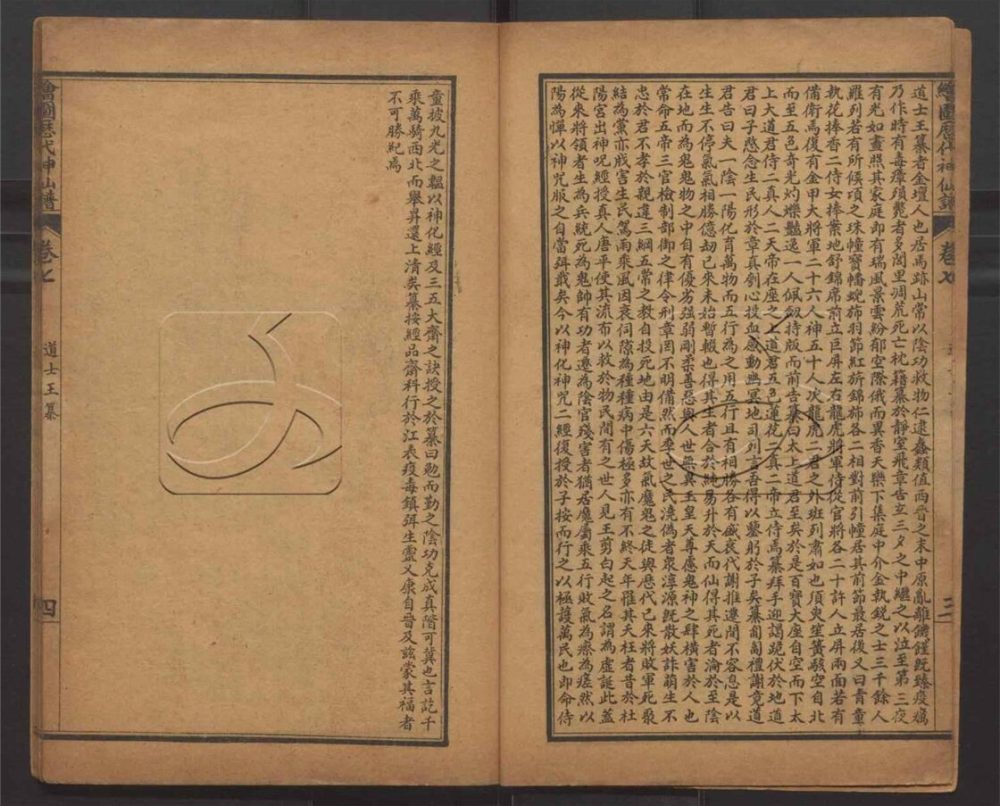 繪圖歷代神仙譜
卷七
三
道士王纂者金壇人也居馬跡山常以陰功救物仁逮蠢類值西晉之末中原亂離饑饉既臻疫癘
乃作時有毒瘴殞斃者多閭里凋荒死亡枕籍纂於靜室飛章告玄三夕之中繼之以泣至第三夜
有光如晝照其家庭即有瑞風景雲紛郁空際俄而異香天樂下集庭中介金執銳之士三千餘人
羅列若有所候頃之珠幢寶幡蜺斾羽節紅旂錦斾各二相對前引幢居其前節最居後又四青童
執花捧香二侍女捧案地舒錦席前立巨屏左右龍虎將軍侍從官將各二十許人立屏兩面若有
備衛焉復有金甲大將軍二十六人神五十人次龍虎二君之外班列肅如也頃臾笙簧駭空自北
而至五色奇光灼爍豔逸一人佩劔持版而前告纂曰太上道君至矣於是百寶大座自空而下太
上大道君侍二真人二天帝在座之上道君五色蓮花二真二帝立侍焉纂拜手迎謁跪伏於地道
君曰子愍念生民形於章真刳心投血感動幽冥地司列言吾得以鑒躬於子矣纂匍匐禮謝竟道
君告曰夫一陰一陽化育萬物而五行為之用五行且有相勝各有盛衰代謝推遷間不容息是以
生生不停氣氣相勝億劫已來未始暫輟也得其生者合於純易升於天而仙得其死者淪於至陰
在地而為鬼鬼物之中自有優劣強弱剛柔善惡與人世無異玉皇天尊慮鬼神之肆橫害於人也
常命五帝三官檢制部御之律令刑章罔不明備然而季世之民澆偽者衆淳源既散妖詐萌生不
忠於君不孝於親違三綱五常之教自投死地由是六天故氣魔鬼之徒與歷代已來將敗軍死聚
結為黨亦戕害生民駕雨乘風因衰伺隙為種種病中傷極多亦有不終天年罹其夭枉者昔於杜
陽宮出神呪經授真人唐平使其流布以救於物民間有之世人見王剪白起之名謂為虛誕此蓋
從來將領者生為兵統死為鬼帥有功者遷為陰官殘害者猶居魔屬乘五行敗氣為瘵為瘧然以
陽為憚以神咒服之自當弭戢矣今以神化神咒二經復授於子按而行之以極護萬民也即命侍
童披九光之韞以神化經及三五大齋之訣授之於纂曰勉而勤之陰功克成真階可冀也言訖千
乘萬騎西北而舉昇還上清矣纂按經品齋科行於江表疫毒鎮弭生靈乂康自晉及茲蒙其福者
不可勝紀焉
繪圖歷代神仙譜
卷七
道士王纂
四